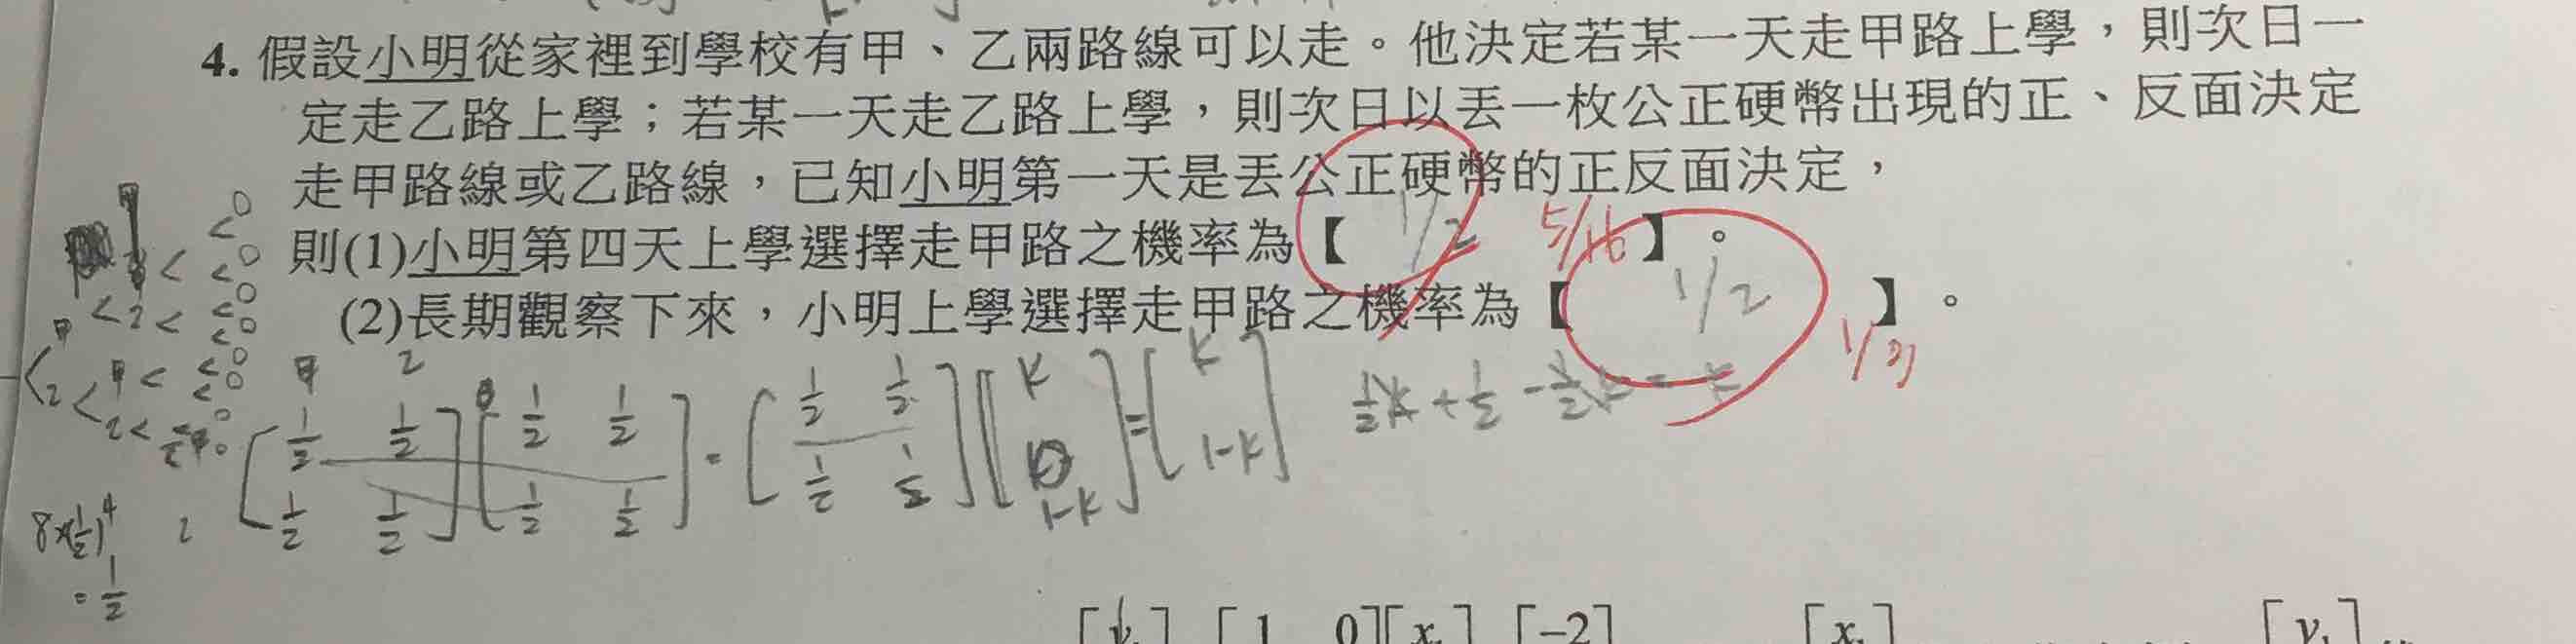 4. 假設小明從家裡到學校有甲、乙兩路線可以走。他決定若某一天走甲路上學,則次日一
定走乙路上學;若某一天走乙路上學,則次日以丟一枚公正硬幣出現的正、反面決定
走甲路線或乙路線,已知小明第一天是丟公正硬幣的正反面決定,
則(1)小明第四天上學選擇走甲路之機率為【 1/2 5/16 】。
(2)長期觀察下來,小明上學選擇走甲路之機率為【 1/2 】。
1/3
甲 2
[1/2 1/2] [1/2 1/2] = [1/2 1/2] [k] = [k]
[1/2 1/2] [1/2 1/2] [1/2 1/2] [1-k] [1-k]
1/2k + 1/2 - 1/2k = k
8×(1/2)^4
= 1/2
[1 0] [-2]